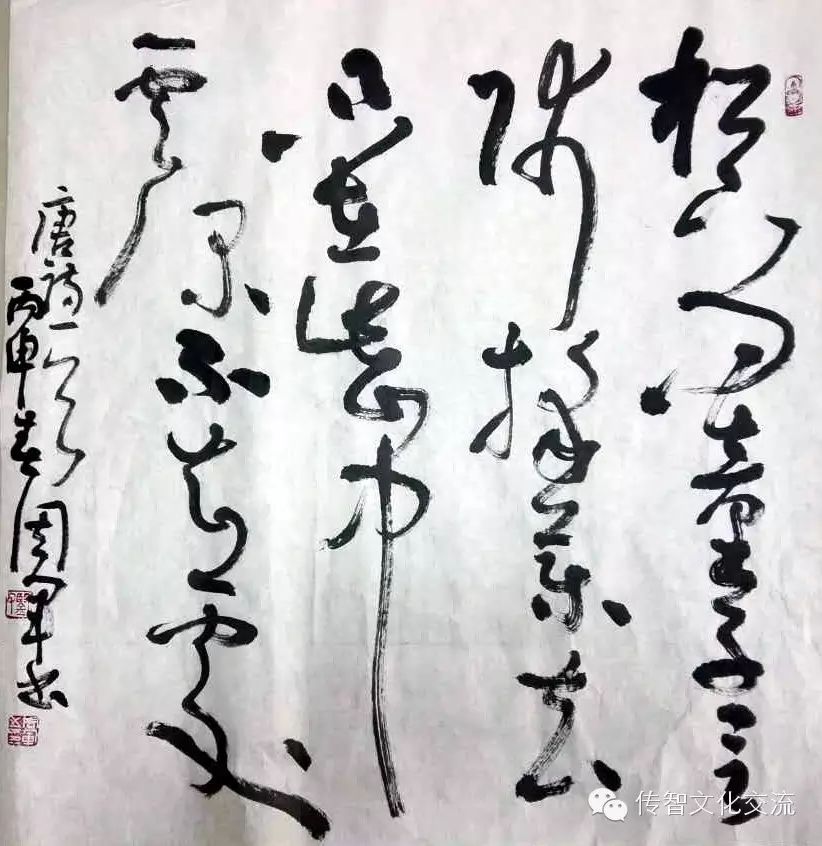 松下問童子言
師採藥去
只在此山中
雲深不知處
唐詩一首
丙申春周軍書
传智文化交流